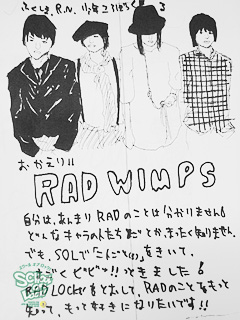 ふくしま R.N. 少年ころけちく 3
おかえり!!
RADWIMPS
自分は、あんまりRADのことは分かりません。
どんなキャラの人たちだとか、まったく知りません。
でも、SOLで「こんごとも」をきいて、
すごくビビッ!!ときました!
RAD LOCKSをとおして、RADのことをもっと
知って、もっと好きになりたいです!!